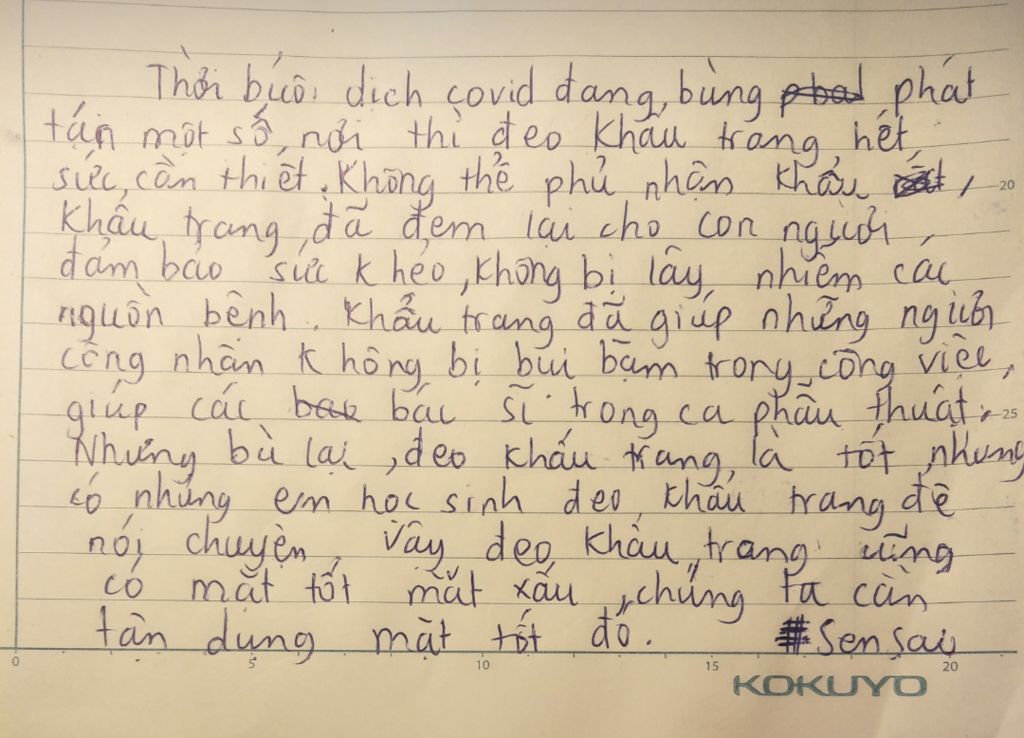 Thời buổi dịch covid đang bùng phát
tán một số nơi thì đeo khẩu trang hết
sức cần thiết. Không thể phủ nhận khẩu ,
khẩu trang đã đem lại cho con người,
đảm bảo sức khẻo, không bị lây nhiễm các
nguồn bệnh. Khẩu trang đã giúp những người
công nhân không bị bụi bặm trong công việc,
giúp các bác sĩ trong ca phẫu thuật.
Nhưng bù lại, đeo khẩu trang là tốt nhưng
có những em học sinh đeo khẩu trang để
nói chuyện. Vậy đeo khẩu trang cũng
có mặt tốt mặt xấu, chúng ta cần
tận dụng mặt tốt đó. #Sensai
20
25
0 5 10 15 20
KOKUYO